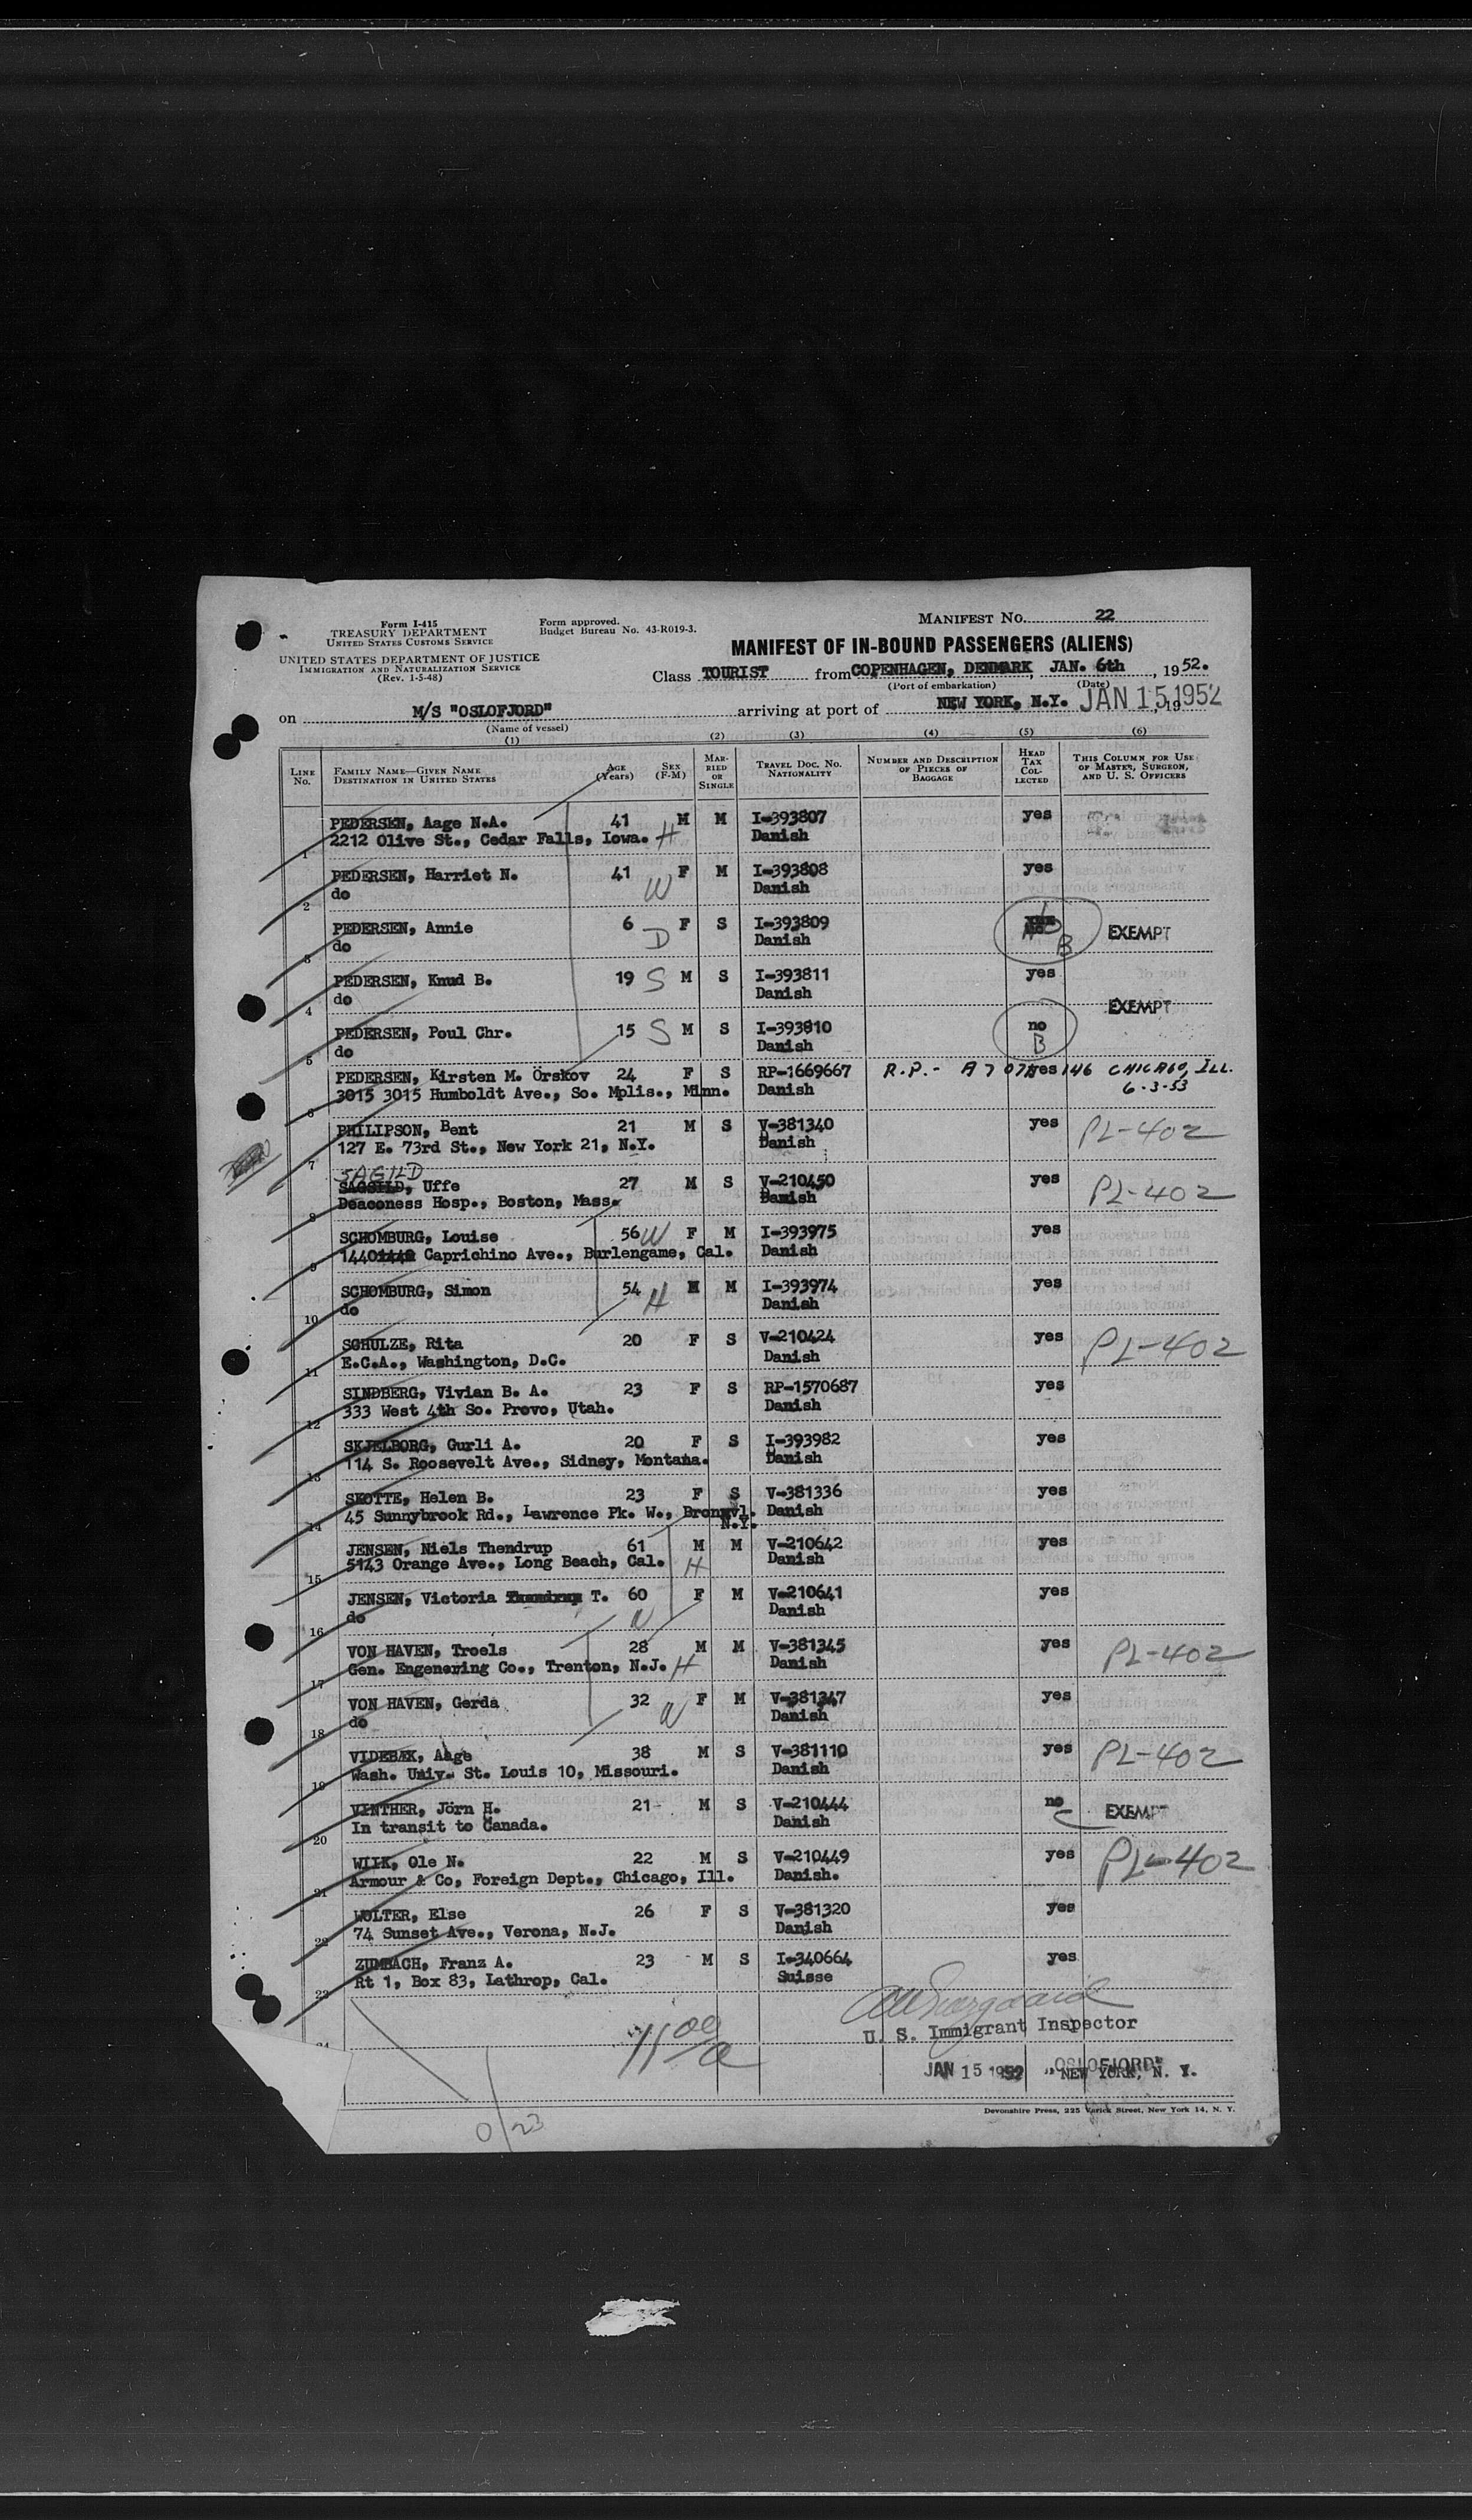 Form I-415
TREASURY DEPARTMENT
UNITED STATES CUSTOMS SERVICE
UNITED STATES DEPARTMENT OF JUSTICE
IMMIGRATION AND NATURALIZATION SERVICE
(Rev. 1-5-48)
Form approved.
Budget Bureau No. 43-R019-3.
MANIFEST NO. 22
MANIFEST OF IN-BOUND PASSENGERS (ALIENS)
Class TOURIST from COPENHAGEN, DENMARK, JAN. 6th, 1952.
(Port of embarkation) (Date)
on M/S "OSLOFJORD" arriving at port of NEW YORK, N.Y. JAN 15 1952, 19
(Name of vessel)
(1) (2) (3) (4) (5) (6)
LINE NO. FAMILY NAME—GIVEN NAME DESTINATION IN UNITED STATES AGE (Years) SEX (F-M) MARRIED OR SINGLE TRAVEL DOC. NO. NATIONALITY NUMBER AND DESCRIPTION OF PIECES OF BAGGAGE HEAD TAX COLLECTED THIS COLUMN FOR USE OF MASTER, SURGEON, AND U. S. OFFICERS
PEDERSEN, Aage N.A. 41 M M I-393807 yes
1 2212 Olive St., Cedar Falls, Iowa. H Danish
PEDERSEN, Harriet N. 41 W F M I-393808 yes
2 do Danish
PEDERSEN, Annie 6 D F S I-393809 B EXEMPT
3 do Danish
PEDERSEN, Knud B. 19 S M S I-393811 yes
4 do Danish
EXEMPT
PEDERSEN, Poul Chr. 15 S M S I-393810 no B
5 do Danish
PEDERSEN, Kirsten M. Örskov 24 F S RP-1669667 R.P.- A 7 07 yes 146 CHICAGO, ILL.
6 3015 3015 Humboldt Ave., So. Mplis., Minn. Danish 6-3-53
PHILIPSON, Bent 21 M S V-381340 yes PL-402
7 127 E. 73rd St., New York 21, N.Y. Danish
SAGILD
SAGGILD, Uffe 27 M S V-210450 yes PL-402
8 Deaconess Hosp., Boston, Mass. Danish
SCHOMBURG, Louise 56 W F M I-393975 yes
9 1440 Caprichino Ave., Burlengame, Cal. Danish
SCHOMBURG, Simon 54 H M M I-393974 yes
10 do Danish
SCHULZE, Rita 20 F S V-210424 yes PL-402
11 E.C.A., Washington, D.C. Danish
SINDBERG, Vivian B. A. 23 F S RP-1570687 yes
12 333 West 4th So. Provo, Utah. Danish
SKJELBORG, Gurli A. 20 F S I-393982 yes
13 114 S. Roosevelt Ave., Sidney, Montana. Danish
SKOTTE, Helen B. 23 F S V-381336 yes
14 45 Sunnybrook Rd., Lawrence Pk. W., Bronxvl. N.Y. Danish
JENSEN, Niels Thendrup 61 M M V-210642 yes
15 5143 Orange Ave., Long Beach, Cal. H Danish
JENSEN, Victoria T. 60 W F M V-210641 yes
16 do Danish
VON HAVEN, Troels 28 M M V-381345 yes PL-402
17 Gen. Engenering Co., Trenton, N.J. H Danish
VON HAVEN, Gerda 32 W F M V-381347 yes
18 do Danish
VIDEBÆK, Aage 38 M S V-381110 yes PL-402
19 Wash. Univ. St. Louis 10, Missouri. Danish
VINTHER, Jörn H. 21 M S V-210444 no EXEMPT
20 In transit to Canada. Danish
WIIK, Ole N. 22 M S V-210449 yes PL-402
21 Armour & Co, Foreign Dept., Chicago, Ill. Danish.
WOLTER, Else 26 F S V-381320 yes
22 74 Sunset Ave., Verona, N.J. Danish
ZUMBACH, Franz A. 23 M S I-340664 yes
23 Rt 1, Box 83, Lathrop, Cal. Suisse
U. S. Immigrant Inspector
11 00/a
JAN 15 1952 "OSLOFJORD" NEW YORK, N. Y.
Devonshire Press, 225 Varick Street, New York 14, N. Y.
0/23